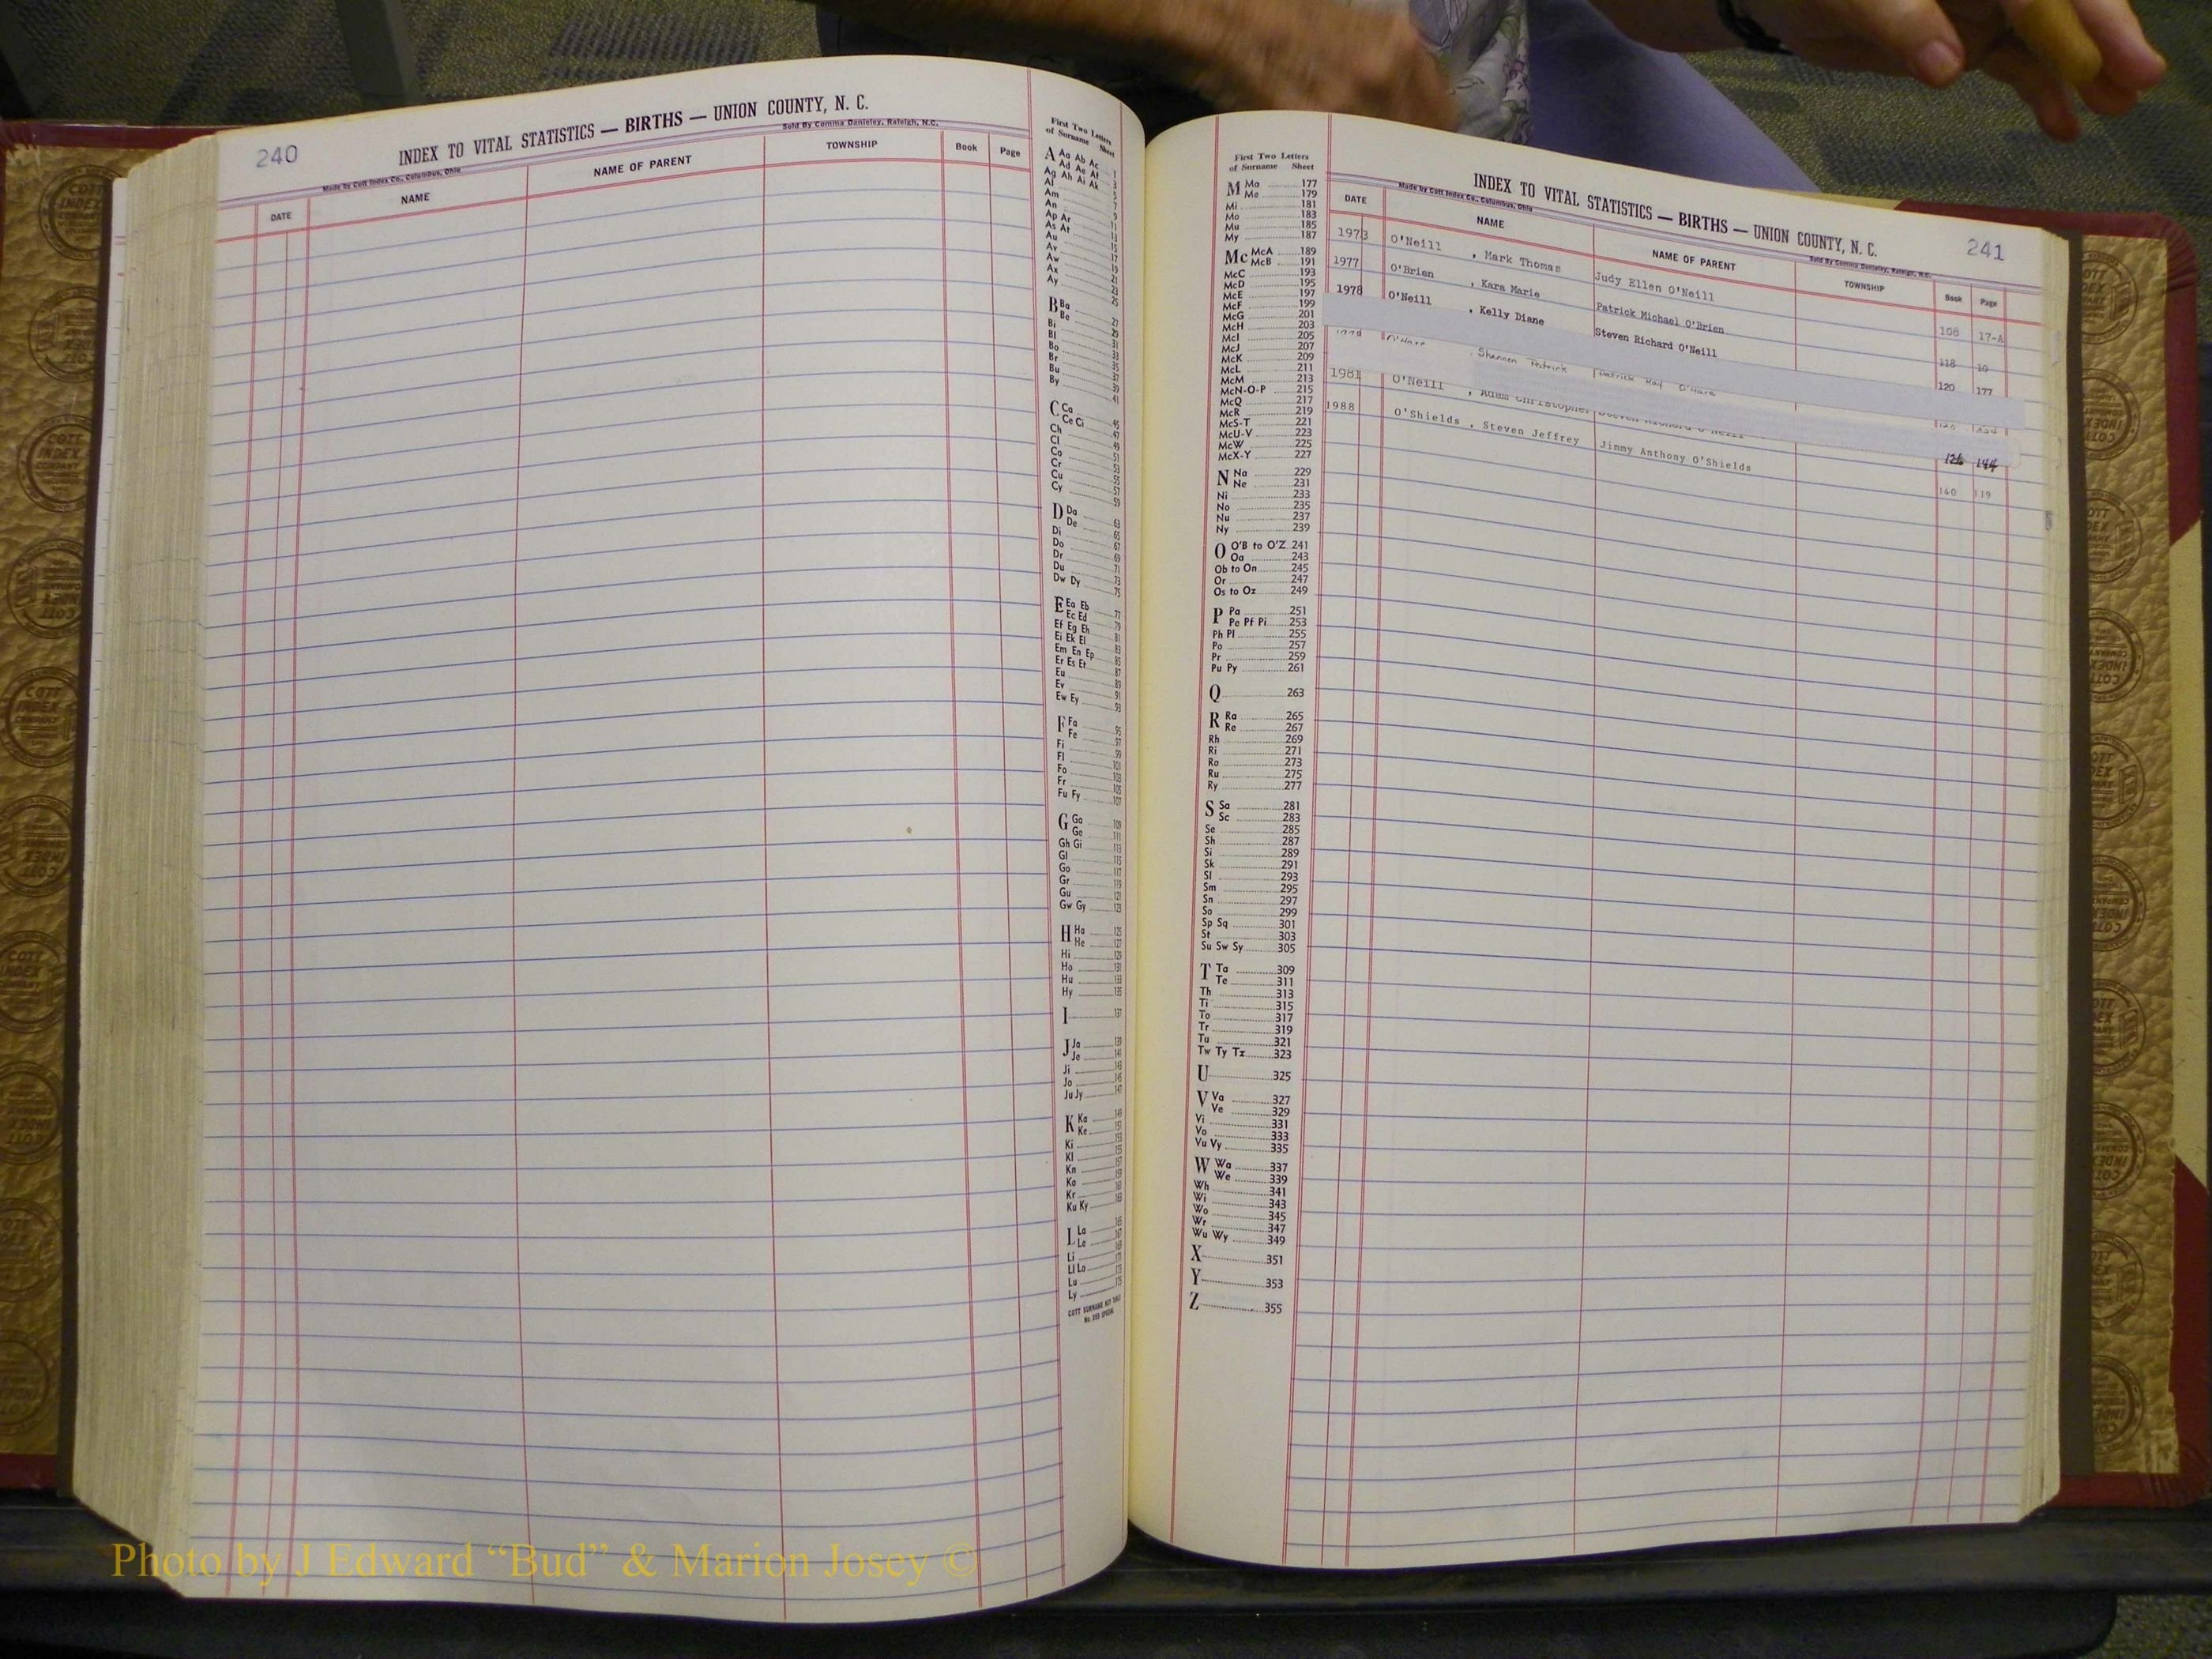 240
INDEX TO VITAL STATISTICS — BIRTHS — UNION COUNTY, N. C.
Made by Cott Index Co., Columbus, Ohio
Sold By Comma Danieley, Raleigh, N.C.
DATE NAME NAME OF PARENT TOWNSHIP Book Page
First Two Letters
of Surname Sheet
A Aa Ab Ac 1
Ad Ae Af 3
Ag Ah Ai Ak 5
Al 7
Am 9
An 11
Ap Ar 13
As At 15
Au 17
Av 19
Aw 21
Ax 23
Ay 25
B Ba 27
Be 29
Bi 31
Bl 33
Bo 35
Br 37
Bu 39
By 41
C Ca 45
Ce Ci 47
Ch 49
Cl 51
Co 53
Cr 55
Cu 57
Cy 59
D Da 63
De 65
Di 67
Do 69
Dr 71
Du 73
Dw Dy 75
E Ea Eb 77
Ec Ed 79
Ef Eg Eh 81
Ei Ek El 83
Em En Ep 85
Er Es Et 87
Eu 89
Ev 91
Ew Ey 93
F Fa 95
Fe 97
Fi 99
Fl 101
Fo 103
Fr 105
Fu Fy 107
G Ga 109
Ge 111
Gh Gi 113
Gl 115
Go 117
Gr 119
Gu 121
Gw Gy 123
H Ha 125
He 127
Hi 129
Ho 131
Hu 133
Hy 135
I 137
J Ja 139
Je 141
Ji 143
Jo 145
Ju Jy 147
K Ka 149
Ke 151
Ki 153
Kl 155
Kn 157
Ko 159
Kr 161
Ku Ky 163
L La 165
Le 167
Li 169
Ll Lo 171
Lu 173
Ly 175
COTT SURNAME KEY TABLE
241
INDEX TO VITAL STATISTICS — BIRTHS — UNION COUNTY, N. C.
Made by Cott Index Co., Columbus, Ohio
Sold By Comma Danieley, Raleigh, N.C.
DATE NAME NAME OF PARENT TOWNSHIP Book Page
1973 O'Neill , Mark Thomas Judy Ellen O'Neill 108 17-A
1977 O'Brien , Kara Marie Patrick Michael O'Brien 118 10
1978 O'Neill , Kelly Diane Steven Richard O'Neill 120 177
O'Hare , Shannon Patrick Patrick Ray O'Hare
1981 O'Neill , Adam Christopher Steven Richard O'Neill 126 144
1988 O'Shields , Steven Jeffrey Jimmy Anthony O'Shields 140 119
First Two Letters
of Surname Sheet
M Ma 177
Me 179
Mi 181
Mo 183
Mu 185
My 187
Mc McA 189
McB 191
McC 193
McD 195
McE 197
McF 199
McG 201
McH 203
McI 205
McJ 207
McK 209
McL 211
McM 213
McN-O-P 215
McQ 217
McR 219
McS-T 221
McU-V 223
McW 225
McX-Y 227
N Na 229
Ne 231
Ni 233
No 235
Nu 237
Ny 239
O O'B to O'Z 241
Oa 243
Ob to On 245
Or 247
Os to Oz 249
P Pa 251
Pe Pf Pi 253
Ph Pl 255
Po 257
Pr 259
Pu Py 261
Q 263
R Ra 265
Re 267
Rh 269
Ri 271
Ro 273
Ru 275
Ry 277
S Sa 281
Sc 283
Se 285
Sh 287
Si 289
Sk 291
Sl 293
Sm 295
Sn 297
So 299
Sp Sq 301
St 303
Su Sw Sy 305
T Ta 309
Te 311
Th 313
Ti 315
To 317
Tr 319
Tu 321
Tw Ty Tz 323
U 325
V Va 327
Ve 329
Vi 331
Vo 333
Vu Vy 335
W Wa 337
We 339
Wh 341
Wi 343
Wo 345
Wr 347
Wu Wy 349
X 351
Y 353
Z 355
COTT
INDEX
COMPANY
Photo by J Edward “Bud” & Marion Josey ©